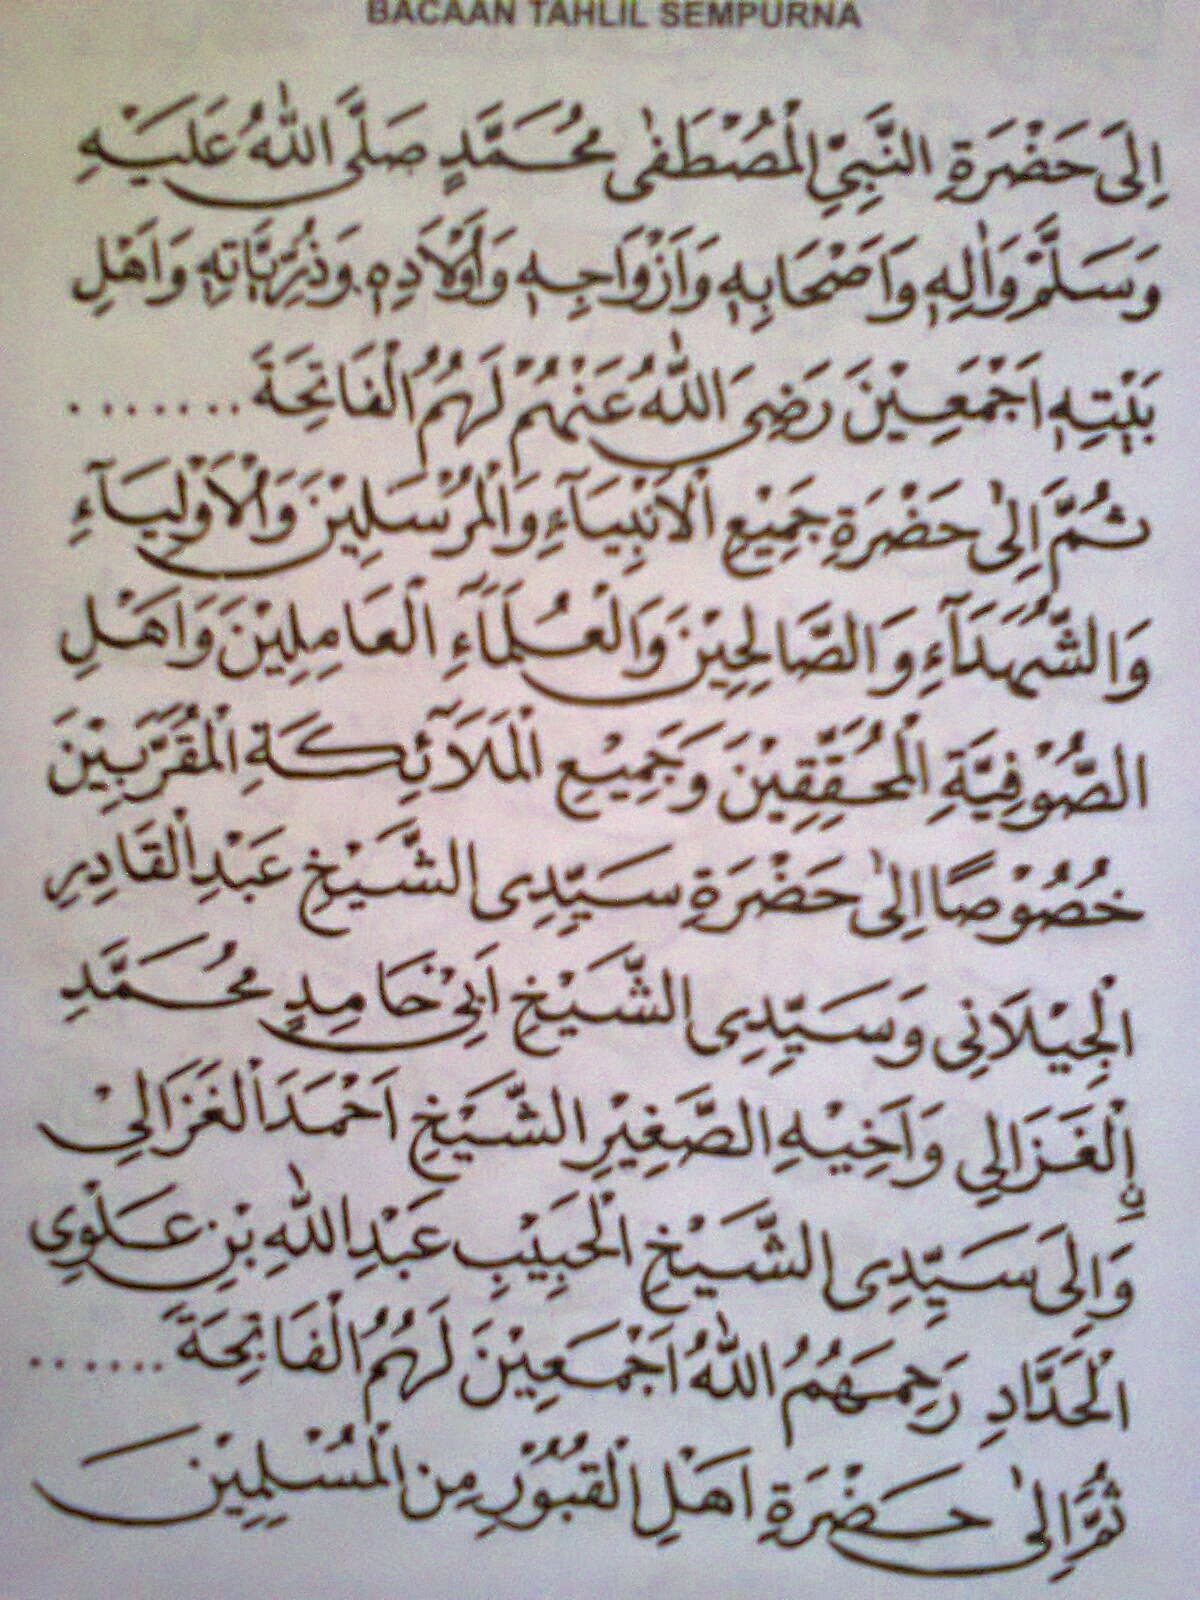 BACAAN TAHLIL SEMPURNA
اِلَى حَضْرَةِ النَّبِيِّ الْمُصْطَفٰى مُحَمَّدٍ صَلَّى اللّٰهُ عَلَيْهِ
وَسَلَّمَ وَاٰلِهٖ وَاَصْحَابِهٖ وَاَزْوَاجِهٖ وَاَوْلَادِهٖ وَذُرِّيَّاتِهٖ وَاَهْلِ
بَيْتِهٖ اَجْمَعِيْنَ رَضِيَ اللّٰهُ عَنْهُمْ لَهُمُ الْفَاتِحَةَ ........
ثُمَّ اِلٰى حَضْرَةِ جَمِيْعِ الْاَنْبِيَآءِ وَالْمُرْسَلِيْنَ وَالْاَوْلِيَآءِ
وَالشُّهَدَآءِ وَالصَّالِحِيْنَ وَالْعُلَمَآءِ الْعَامِلِيْنَ وَاَهْلِ
الصُّوْفِيَّةِ الْمُحَقِّقِيْنَ وَجَمِيْعِ الْمَلَآئِكَةِ الْمُقَرَّبِيْنَ
خُصُوْصًا اِلٰى حَضْرَةِ سَيِّدِى الشَّيْخِ عَبْدِ الْقَادِرِ
الْجِيْلَانِى وَسَيِّدِى الشَّيْخِ اَبِيْ حَامِدٍ مُحَمَّدِ
نِ الْغَزَالِي وَاَخِيْهِ الصَّغِيْرِ الشَّيْخِ اَحْمَدَ الْغَزَالِيْ
وَاِلَى سَيِّدِى الشَّيْخِ الْحَبِيْبِ عَبْدِ اللّٰهِ بْنِ عَلْوِى
الْحَدَّادِ رَحِمَهُمُ اللّٰهُ اَجْمَعِيْنَ لَهُمُ الْفَاتِحَةَ .......
ثُمَّ اِلٰى حَضْرَةِ اَهْلِ الْقُبُوْرِ مِنَ الْمُسْلِمِيْنَ